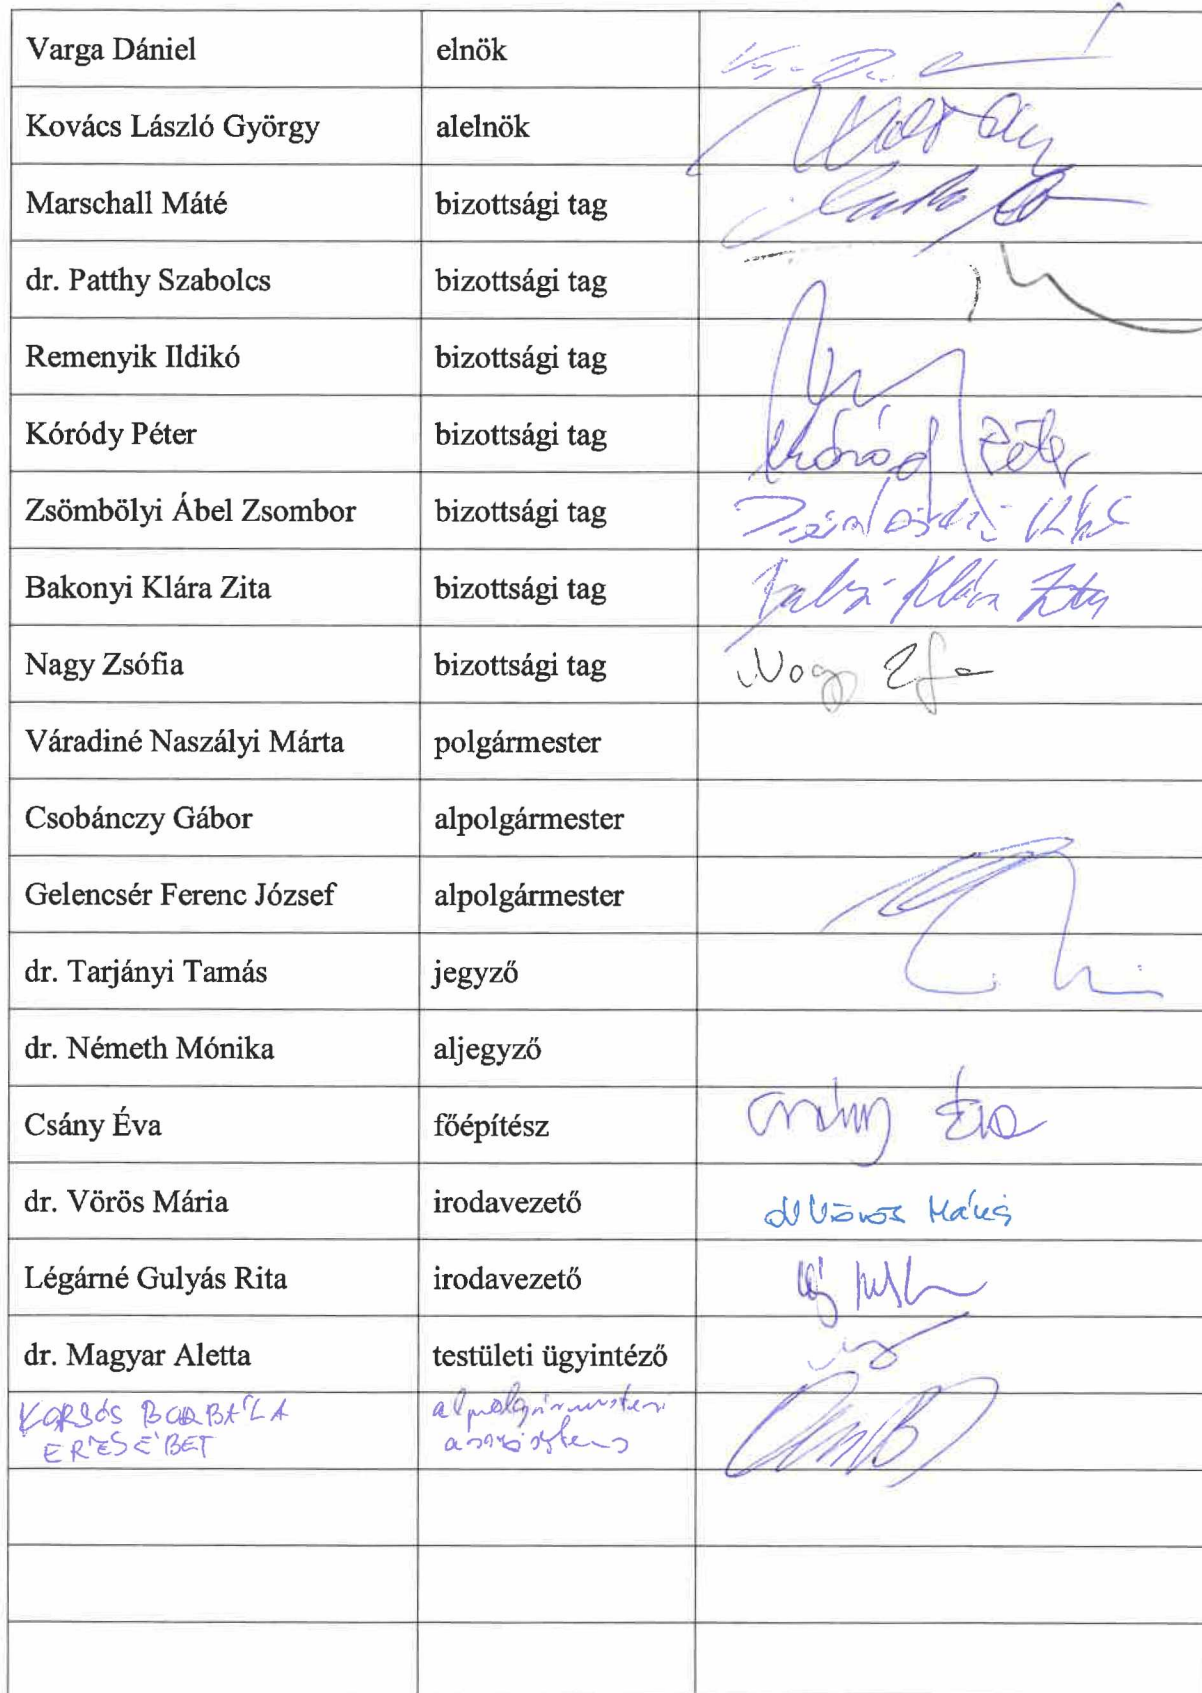 Varga Dániel elnök
Kovács László György alelnök
Marschall Máté bizottsági tag
dr. Patthy Szabolcs bizottsági tag
Remenyik Ildikó bizottsági tag
Kóródy Péter bizottsági tag Kóródy Péter
Zsömbölyi Ábel Zsombor bizottsági tag
Bakonyi Klára Zita bizottsági tag Klára Zita
Nagy Zsófia bizottsági tag Nagy
Váradiné Naszályi Márta polgármester
Csobánczy Gábor alpolgármester
Gelencsér Ferenc József alpolgármester
dr. Tarjányi Tamás jegyző
dr. Németh Mónika aljegyző
Csány Éva főépítész Csány Éva
dr. Vörös Mária irodavezető dr Vörös Mária
Légárné Gulyás Rita irodavezető
dr. Magyar Aletta testületi ügyintéző
KORSÓS BORBÁLA alpolgármesteri
ERZSÉBET asszisztens